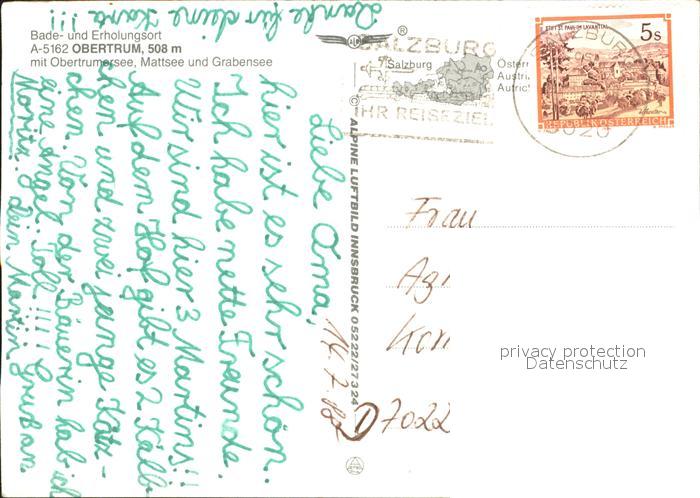 Bade- und Erholungsort
A-5162 OBERTRUM, 508 m
mit Obertrumersee, Mattsee und Grabensee
Danke für deine Karte!!!
Liebe Oma,
hier ist es sehr schön.
Ich habe nette Freunde.
Wir sind hier 3 Martins!!
Auf dem Hof gibt es 2 Kälb-
chen und zwei junge Kätz-
chen. Von der Bäuerin hab ich
eine Angel: Toll!!!! Gruß an
Moritz, dein Martin
© ALPINE LUFTBILD INNSBRUCK 05222/27324
SALZBURG
Salzburg
Österr
Austri
Autric
IHR REISEZIEL
SALZBURG
5020
STIFT ST. PAUL IM LAVANTTAL
5s
REPUBLIK ÖSTERREICH
Frau
14.7.
D7022
privacy protection
Datenschutz